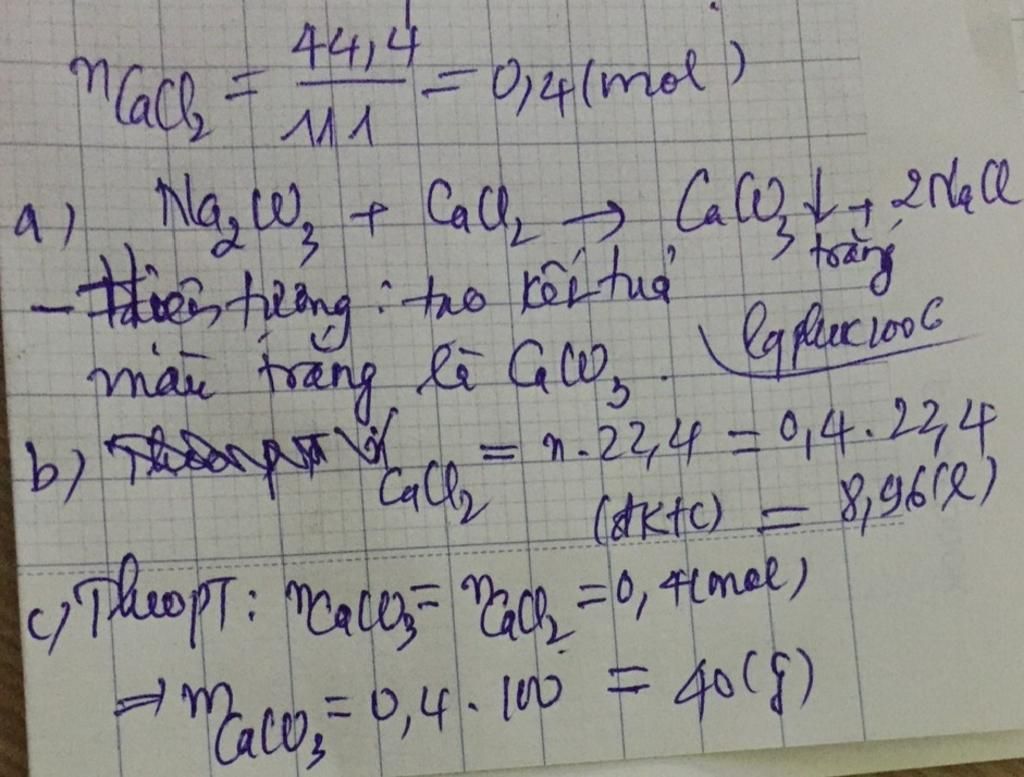 nCaCl₂ = 44,4/111 = 0,4 (mol)
a) Na₂CO₃ + CaCl₂ → CaCO₃↓ + 2NaCl
trắng
- Hiện tượng : tạo kết tủa
màu trắng là CaCO₃.
b) V CaCl₂ = n.22,4 = 0,4.22,4
(đktc) = 8,96 (l)
c) Theo PT: nCaCO₃ = nCaCl₂ = 0,4 (mol)
⇒ mCaCO₃ = 0,4.100 = 40 (g)